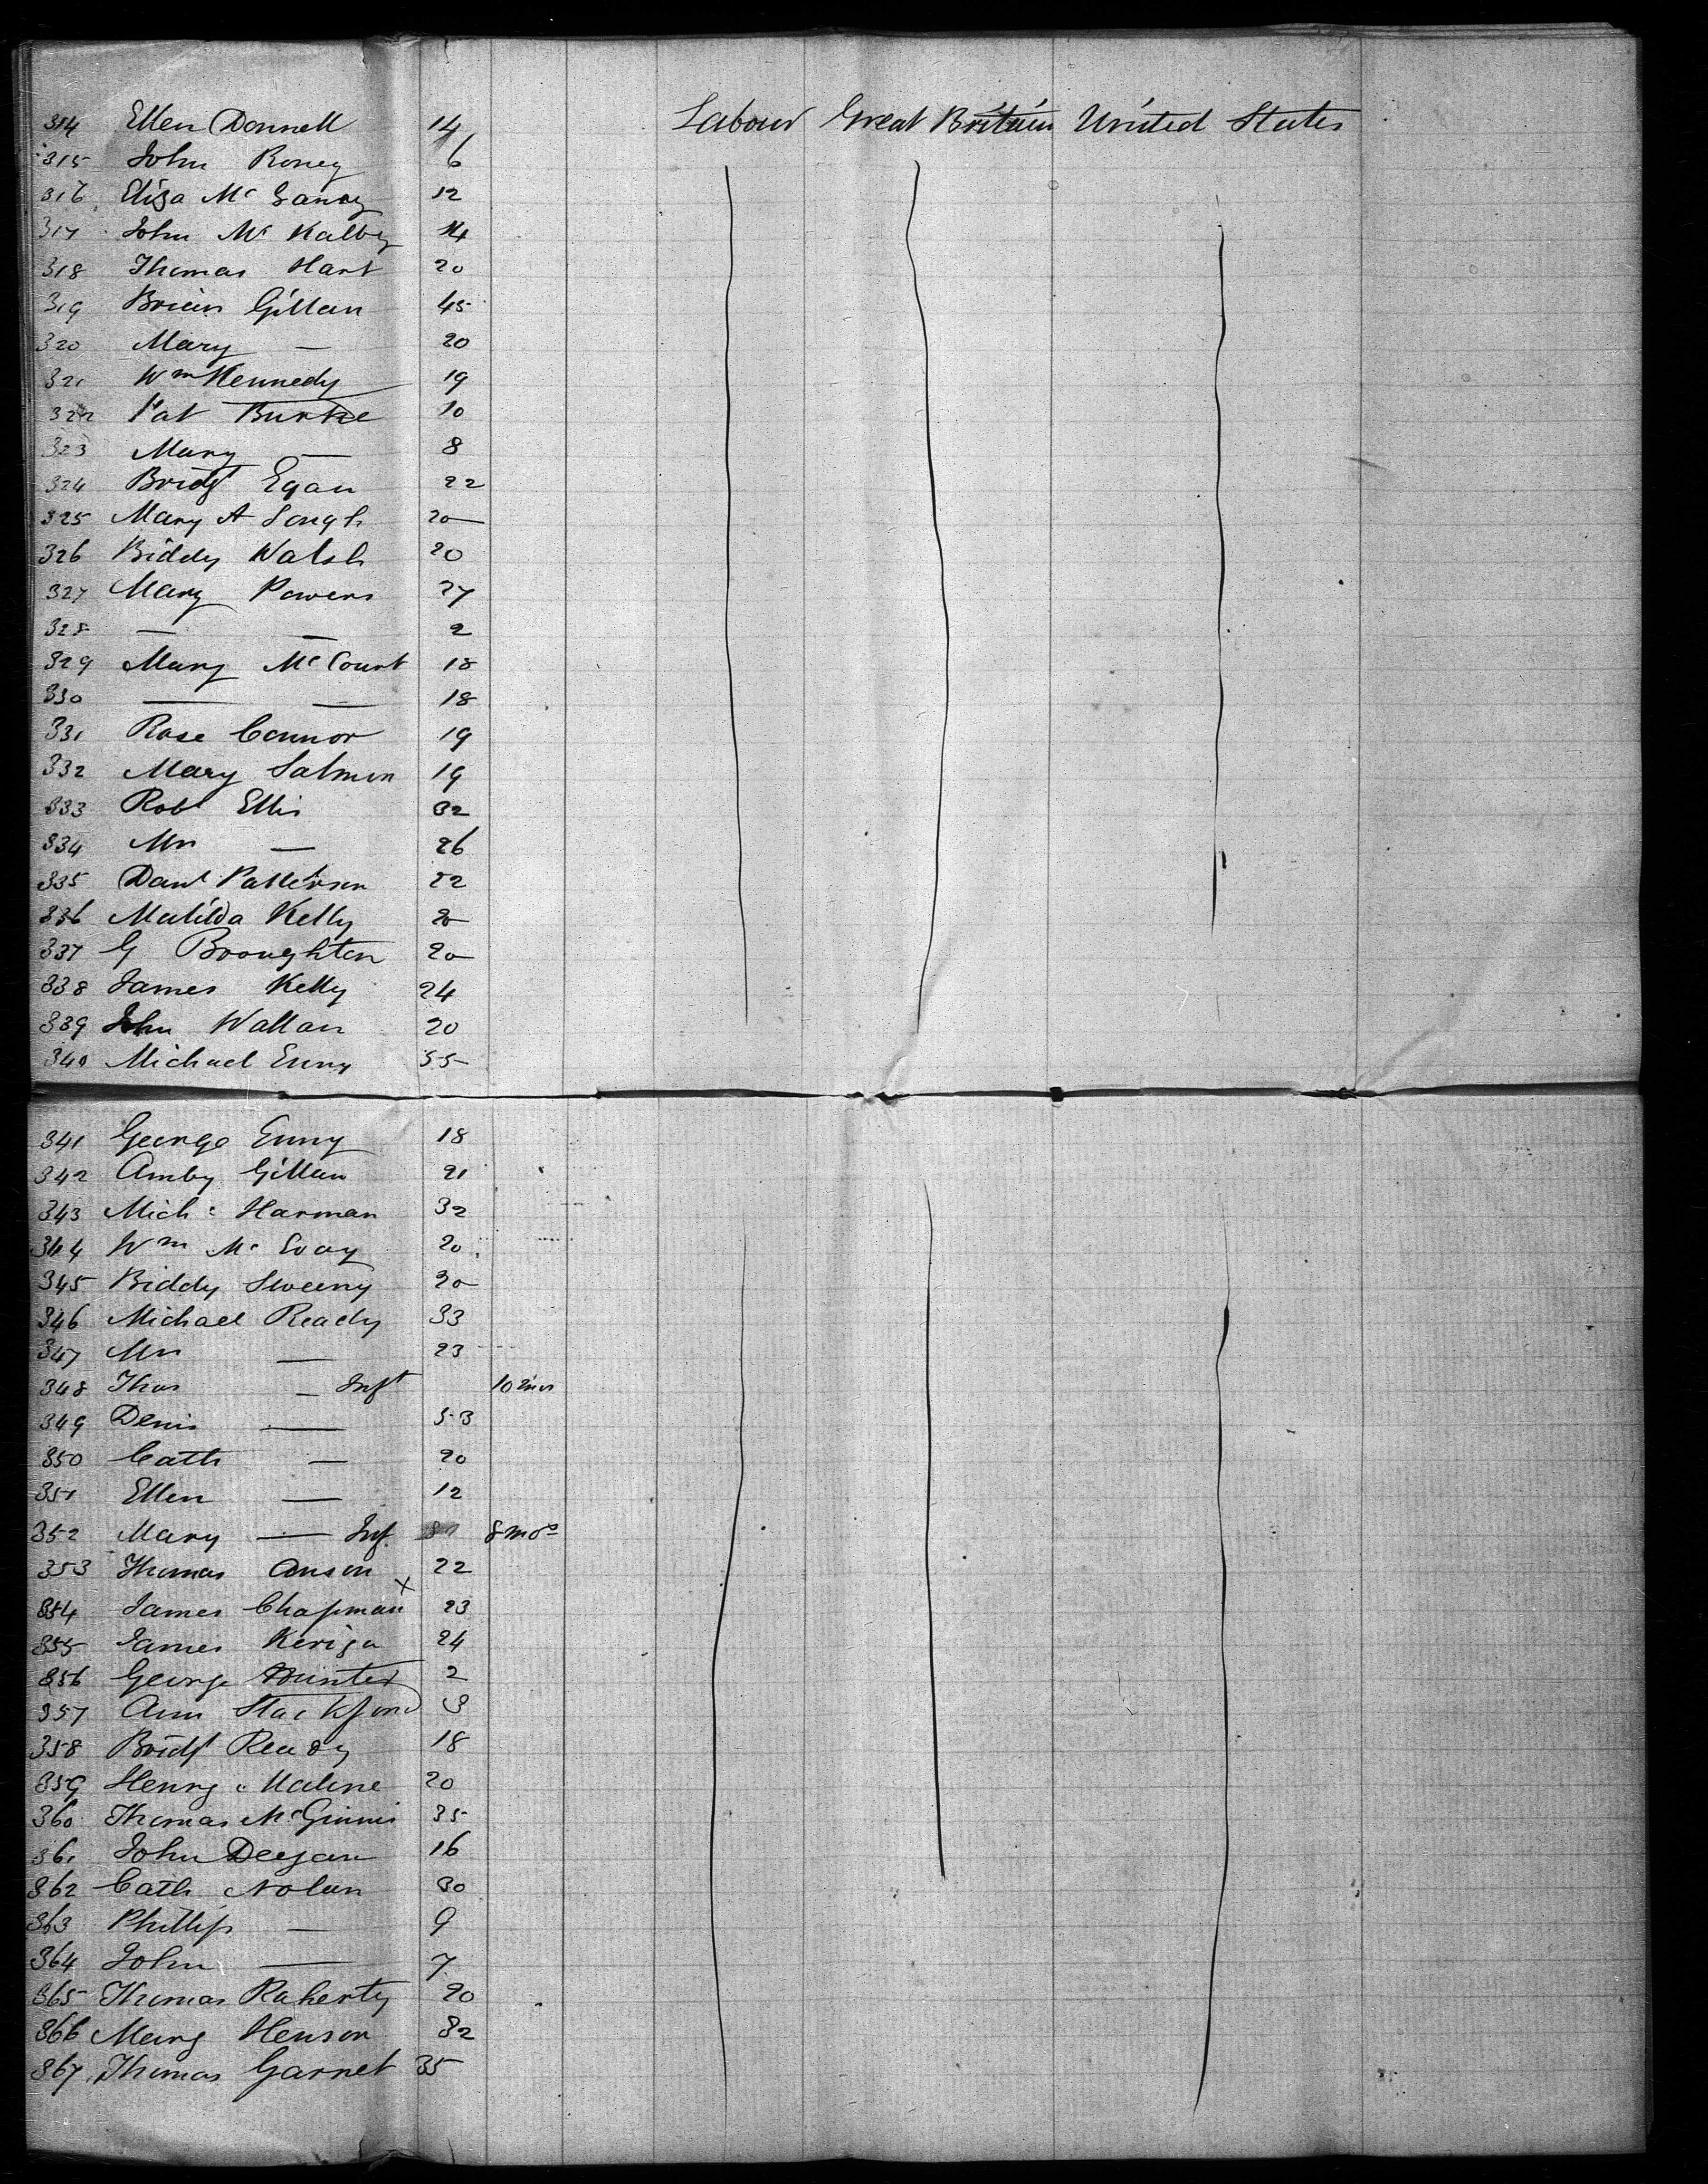 314 Ellen Donnell 14 Labour Great Britain United States
315 John Roney 6
316 Eliza Mc 12
317 John Mc Kalby 14
318 Thomas Hart 20
319 Brian Gillan 45
320 Mary — 20
321 Wm Kennedy 19
322 Pat Burke 10
323 Mary — 8
324 Bridgt Egan 22
325 Mary A 20
326 Biddy Walsh 20
327 Mary Powers 27
328 — — 2
329 Mary McCourt 18
330 — — 18
331 Rose Connor 19
332 Mary Salmon 19
333 Robt Ellis 32
334 Mrs — 26
335 Danl Patterson 22
336 Matilda Kelly 20
337 G Broughton 20
338 James Kelly 24
339 John Wallan 20
340 Michael Enny 55
341 George Enny 18
342 Amby Gillan 21
343 Mich: Harman 32
344 Wm Mc Evoy 20
345 Biddy Sweeny 30
346 Michael Ready 33
347 Mrs — 23
348 Thos — Inft 10 mos
349 Denis — 53
350 Cath — 20
351 Ellen — 12
352 Mary — Inf. 8 mos
353 Thomas Anson 22
354 James Chapman x 23
355 James Kerigan 24
356 George Hunter 2
357 Ann 3
358 Bridgt Ready 18
359 Henry Malone 20
360 Thomas McGinnis 35
361 John Deegan 16
362 Cath Nolan 30
363 Phillip — 9
364 John — 7
365 Thomas Raherty 20
366 Mary Henson 32
367 Thomas Garnet 35